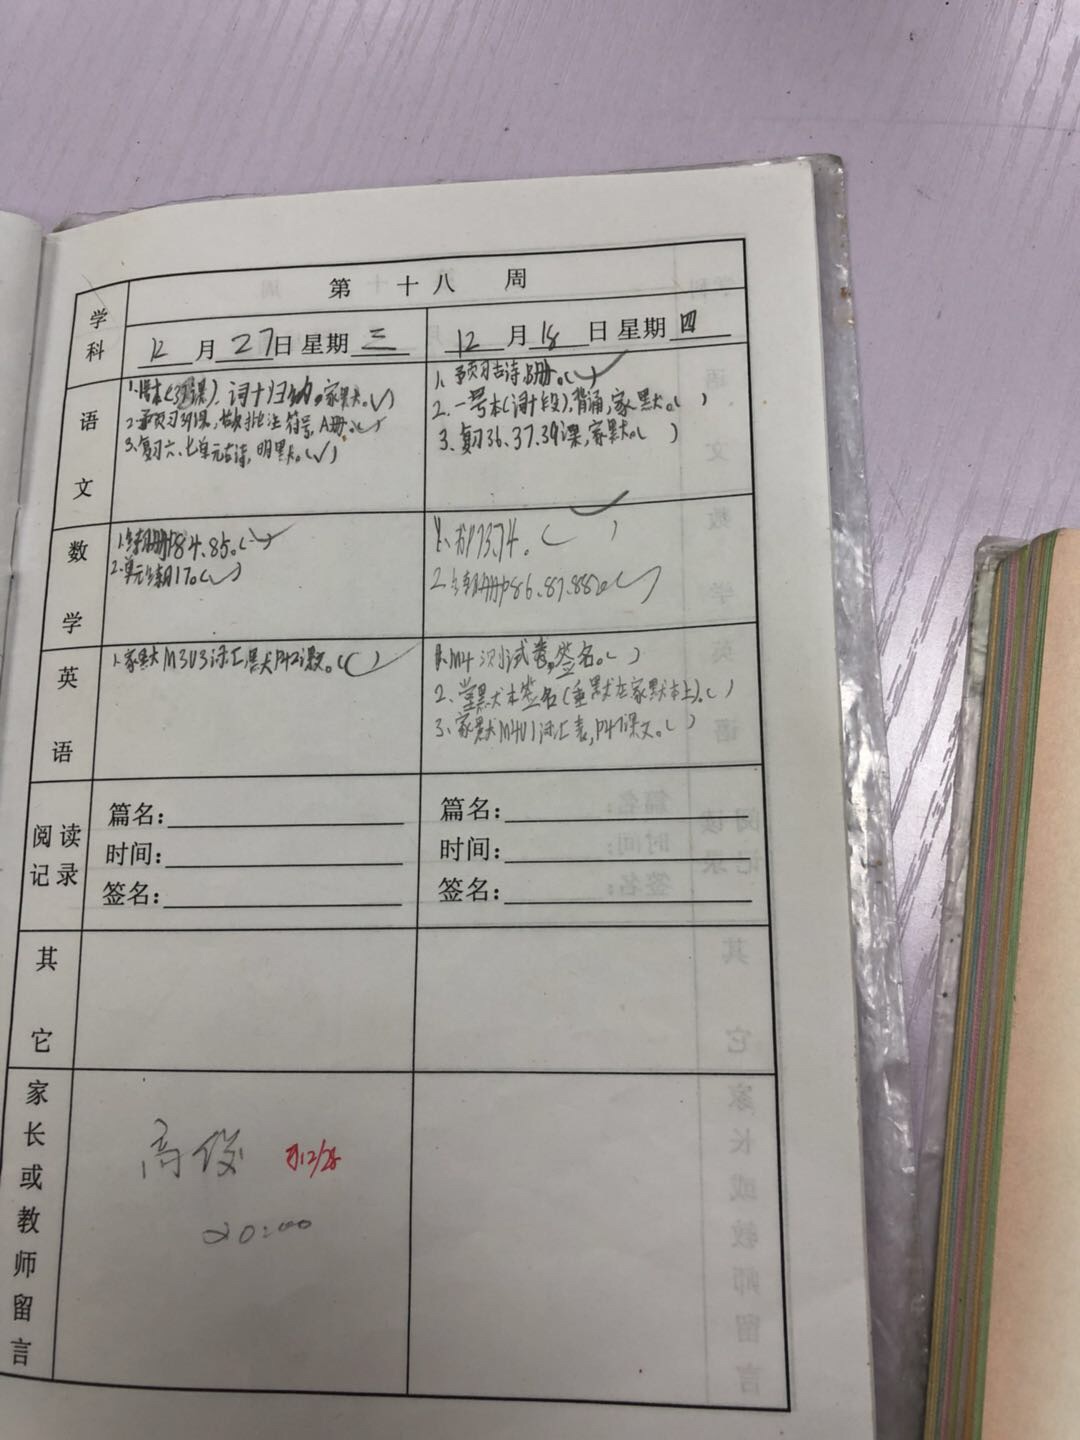 第 十 八 周
学科
12月27日 星期三
12月18日 星期四
语文
1.一号本(37课),词十归纳,家默。(✓)
2.预习39课,做批注符号,A册。(✓)
3.复习六、七单元古诗,明默。(✓)
1.预习古诗,B册。(✓)
2.一号本(词十段),背诵,家默。( )
3.复习36.37.39课,家默。( )
数学
1.练习册P84.85。(✓)
2.单元练习17。(✓)
1.书P73.74。( )
2.练习册P86.87.88。(✓)
英语
1.家默M3U3词汇,默P42课文。(✓)
1.M4 小试卷,签名。( )
2.默本签名(重默在家默本上)。( )
3.家默M4U1词汇表,P47课文。( )
阅读记录
篇名:
时间:
签名:
篇名:
时间:
签名:
其它
家长或教师留言
高俊
12/28
20:00